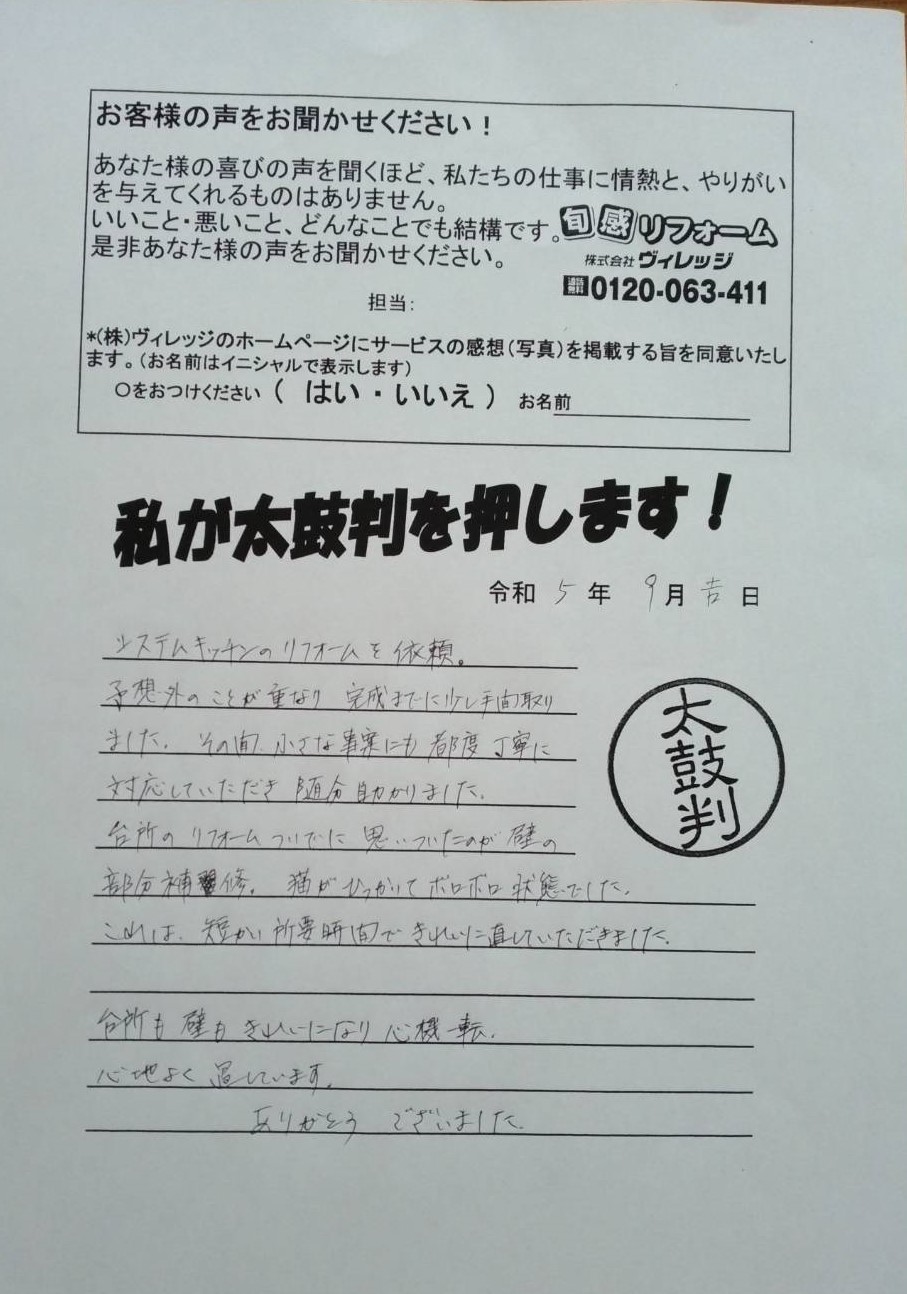 お客様の声をお聞かせください！
あなた様の喜びの声を聞くほど、私たちの仕事に情熱と、やりがい
を与えてくれるものはありません。
いいこと・悪いこと、どんなことでも結構です。
是非あなた様の声をお聞かせください。
旬感リフォーム
株式会社ヴィレッジ
通話無料0120-063-411
担当：
*(株)ヴィレッジのホームページにサービスの感想(写真)を掲載する旨を同意いたし
ます。(お名前はイニシャルで表示します)
○をおつけください（ はい ・ いいえ ） お名前
私が太鼓判を押します！
令和 5 年 9 月 吉 日
システムキッチンのリフォームを依頼。
予想外のことが重なり 完成までに少し手間取り
ました。その間、小さな事案にも都度丁寧に
対応していただき 随分助かりました。
太鼓判
台所のリフォームついでに思いついたのが壁の
部分補修。猫がひっかいてボロボロ状態でした。
これは、短かい所要時間できれいに直していただきました。
台所も壁もきれいになり心機一転。
心地よく 過しています。
ありがとうございました。